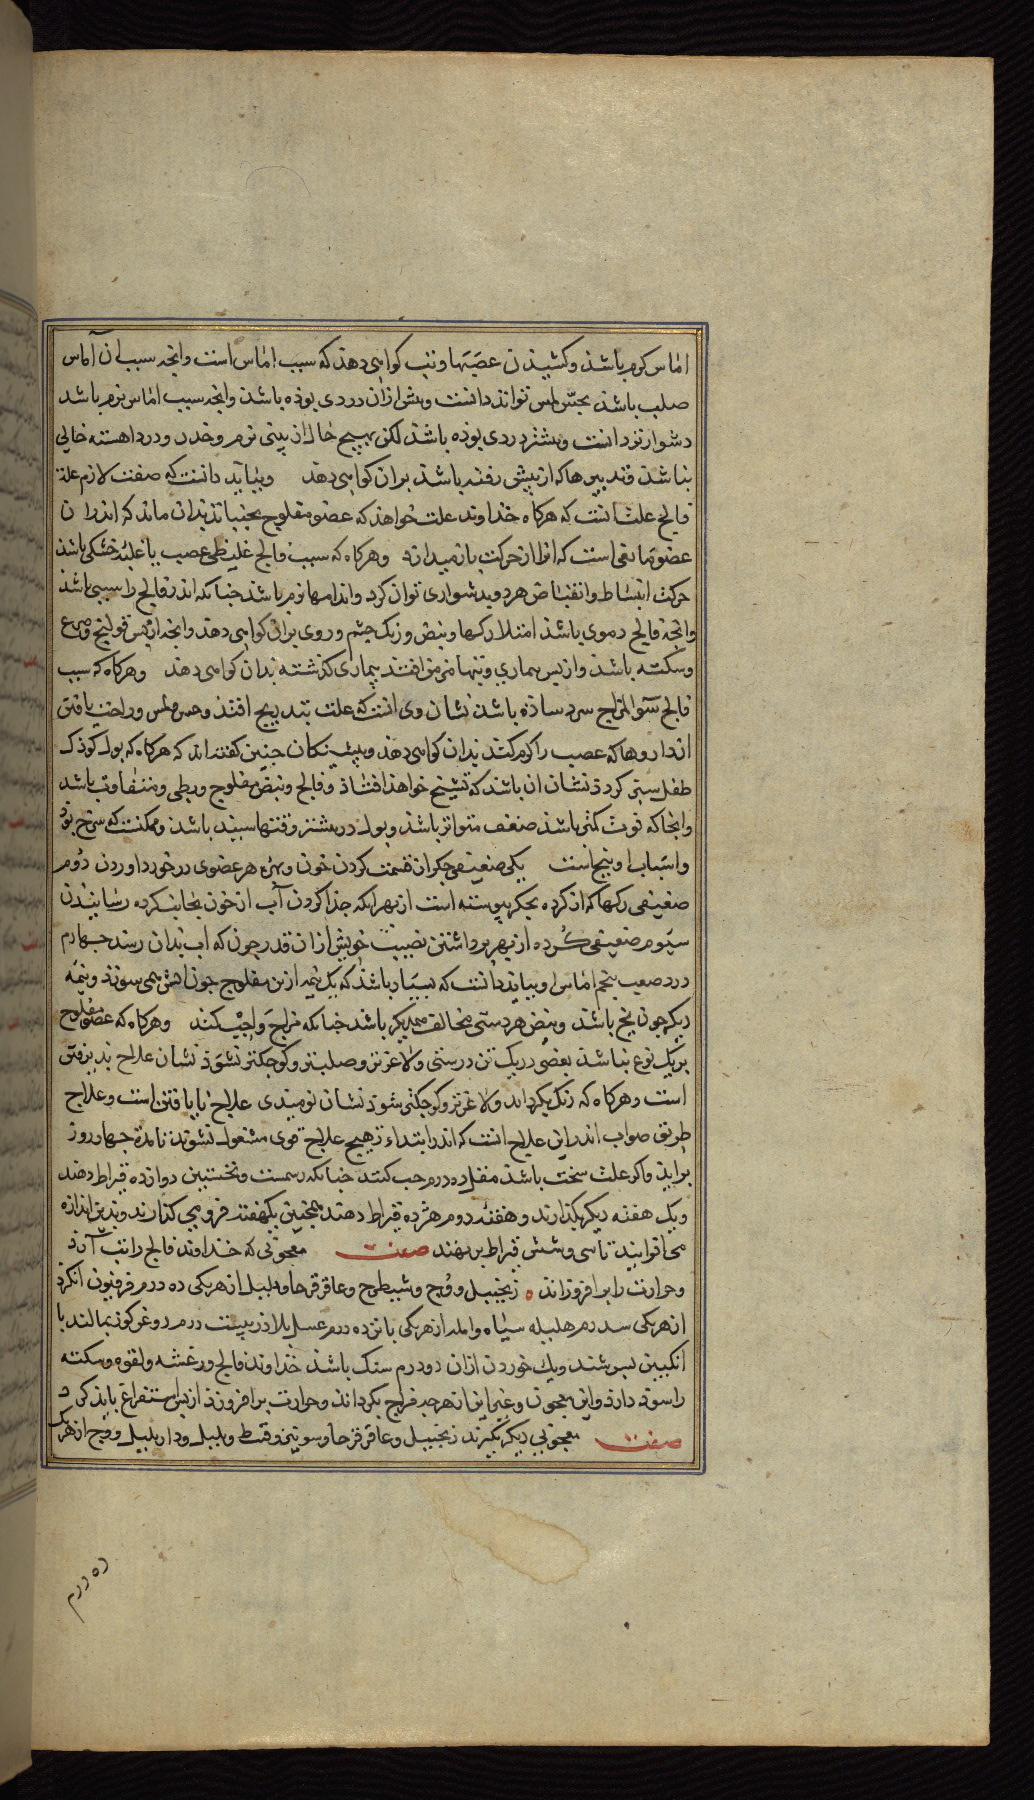 اماس کرم باشذ و کشیذن عصبها و تب کواهی دهذ که سبب اماس است وانجه سبب ان آماس
صلب باشذ بحس لمس تواند دانست و بیش ازان دردی بوذه باشذ وانجه سبب اماس نرم باشد
دشوارتر دانست و بیشتر دردی بوذه باشذ لکن بهیچ حال از تبی نرم و خدر و درد اهسته خالی
نباشذ و تدبیرها که از پیش رفته باشذ بران کواهی دهذ و بباید دانست که صفت لازم علت
فالج علت است که هرکاه خداوند علت خواهذ که عضو مفلوج بجنباند بدان ماند که اندران
عضو مانعی است که اورا از حرکت باز میدارد و هرکاه که سبب فالج غلیظی عصب یا غلبه خشکی باشذ
حرکت انبساط و انقباض هر دو بدشواری توان کرد و اندامها نرم باشذ جنانکه اندر فالج راستی باشذ
وانجه فالج دموی باشذ امتلا رکها و نبض و رنک جشم و روی بران کواهی دهذ وانجه از پس قولنج و صرع
و سکته باشذ و از پس بیماری و تبها مزمن افتد بیماری کذشته بدان کواهی دهذ و هرکاه که سبب
فالج سو المزاج سرد ساذه باشذ نشان وی انست که علت بتدریج افتد و حس لمس و راحت یافتن
از داروها که عصب را کرم کند بدان کواهی دهذ و پیشینکان جنین کفته اند که هرکاه که بول کوذک
طفل سبز کردد نشان ان باشد که تشنج خواهذ افتاذ و فالج و نبض مفلوج و بطی و متفاوت باشد
وانجا که قوت کمتر باشذ ضعف متواتر باشذ و بول در بیشتر وقتها سبید باشذ و ممکنست که سرخ بود
و اسباب او پنج است یکی ضعیفی جکر از قسمت کردن خون و بهره هر عضوی درخورد او دادن دوم
ضعیفی رکها که از کرده بجکر پیوسته است از بهر انکه جذا کردن آب از خون بجانب کرده رسانیذن
سیوم ضعیفی کرده از بهر برداشتن نصیب خویش ازان قدر خون که اب بدان رسد جهارم
درد صعب پنجم اماس و بباید دانست که بسیار باشذ که یک نیمه از تن مفلوج جون اتش می سوزد و نیمه
دیکر جون یخ باشذ و نبض هر دستی مخالف یکدیکر باشذ جنانکه مزاج واجب کند و هرکاه که عضو مفلوج
بر یک نوع نباشذ بعضی در یک تن درستی و لاغرتر و صلبتر و کوجکتر نشوذ نشان علاج بذیرفتن
است و هرکاه که رنک بکرداند و لاغرتر و کوجکتر شوذ نشان نومیذی علاج نایافتن است و علاج
طریق صواب اندر این علاج انست که اندر ابتداء بهیچ علاج قوی مشغول نشوند تا مدة جهار روز
براید و اکر علت سخت باشذ مقل ده درم حب کنند جنانکه رسمست و نخستین دوازده قیراط دهند
و یک هفته دیکر بکذارند و هفته دوم هژده قیراط دهند همجنین یکهفته فرو می کذارند و بدین اندازه
می افزایند تا سی و شش قیراط برنهند صفت معجونی که خداوند فالج را تب آرد
و حرارت را برافروزاند زنجبیل و وج و شیطرج و عاقرقرحا و فلفل از هریکی ده درم فرفیون انکزد
از هریکی سه درم هلیله سیاه و امله از هریکی پانزده درم عسل بلاذر بیست درم روغن کوز بمالند با
انکبین بسرشند و یک خوردن ازان دو درم سنک باشذ خداوند فالج و رعشه و لقوه و سکته
را سوذ دارذ و این معجون و غیر این از هرجه مزاج بکرداند و حرارت برافروزد از پس استفراغ باید کرد
صفت معجونی دیکر بکیرند زنجبیل و عاقرقرحا و سونیز و قسط و فلفل و دارفلفل و وج از هریک
ده درم